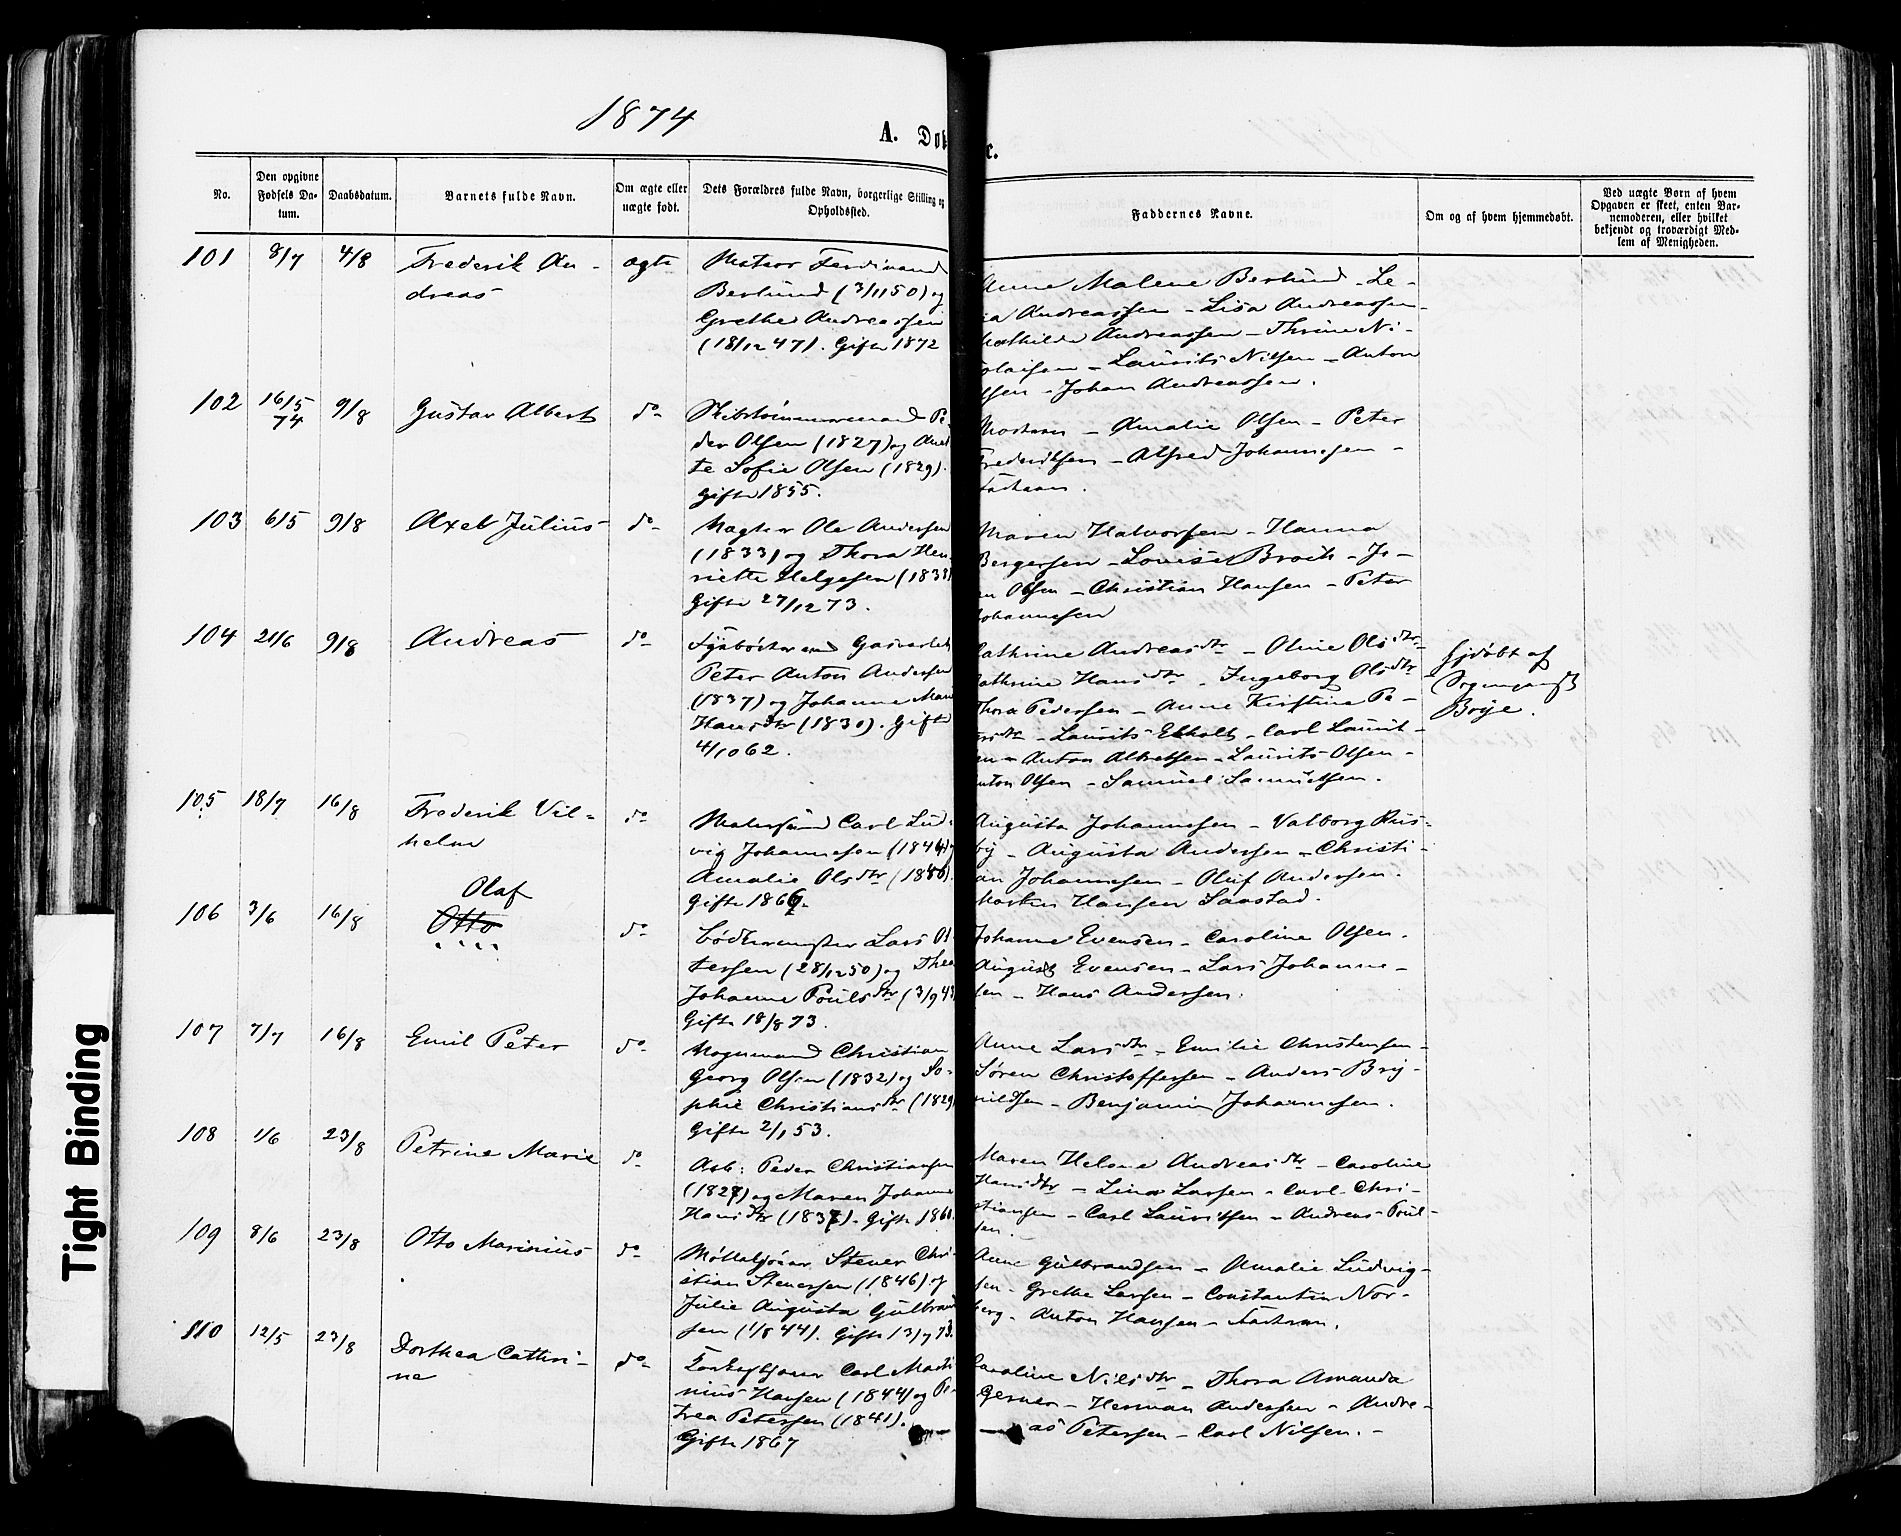 1874
A. Døb
e.
No.
Den opgivne Fødsels Datum.
Daabsdatum.
Barnets fulde Navn.
Om ægte eller uægte født.
Dets Forældres fulde Navn, borgerlige Stilling og Opholdssted.
Faddernes Navne.
Om og af hvem hjemmedøbt.
Ved uægte Børn af hvem
Opgaven er skeet, enten Bar-
nemoderen, eller hvilket
bekjendt og troværdigt Med-
lem af Menigheden.
101 8/7 4/8 Frederik An-
dreas
ægte
Ferdinand
Berlund (3/11 50) og
Grethe Andreassen
(18/12 47). Gift 1872
Anne Malene Berlund - Le-
na Andreassen - Lisa Andreassen -
Mathilde Andreassen - Thrine Ni-
colaisen - Laurits Nilsen - Anton
- Johan Andreassen.
102 16/5 74 9/8 Gustav Albert do
Skibstømmermand Pe-
der Olsen (1827) og Anet-
te Sofie Olsen (1829).
Gift 1855.
Moderen - Amalie Olsen - Peter
Frederiksen - Alfred Johannesen -
Faderen.
103 6/5 9/8 Axel Julius do
Ole Andersen
(1833) og Thora Hen-
riette Helgesen (1838)
Gift 27/12 73.
Maren Halvorsen - Hanna
Bergersen - Louise Broch - Jo-
Olsen - Christian Hansen - Peter
Johannesen
104 21/6 9/8 Andreas do
Fyrbøter ved Gasverket
Peter Anton Andersen
(1837) og Johanne Marie
Hansdtr (1830). Gift
4/10 62.
Cathrine Andreasdtr - Oline Olsdtr -
Cathrine Hansdtr - Ingeborg Olsdtr
Thora Pedersen - Anne Kirstine Pe-
dersdtr - Laurits Ekholt - Carl Laurit-
sen - Anton Albretsen - Laurits Olsen -
Anton Olsen - Samuel Samuelsen.
Hjdøbt af
Sognepræst
Boye.
105 18/7 16/8 Frederik Vil-
helm
do
Carl Lud-
vig Johannesen (1844) og
Amalie Olsdtr (1846).
Gift 1869.
Augusta Johannesen - Valborg Rus-
by - Augusta Andersen - Christi-
an Johannesen - Oluf Andersen.
Morten Hansen Saastad.
106 3/6 16/8 Olaf
Otto
do
Bødkermester Lars Ol-
(28/12 50) og Thea
Johanne Poulsdtr (3/9 43)
Gift 18/8 73.
Johanne Evensen - Caroline Olsen.
August Evensen - Lars Johanne-
sen - Hans Andersen.
107 7/7 16/8 Emil Peter do
Christian
Georg Olsen (1832) og So-
phie Christiansdtr (1829)
Gift 2/1 53.
Anne Larsdtr - Emilie Christensen -
Søren Christoffersen - Anders Bry-
nildsen - Benjamin Johannesen.
108 1/6 23/8 Petrine Marie do
Arb: Peder Christiansen
(1827) og Maren Johanne
Hansdtr (1837). Gift 1861.
Maren Helene Andreasdtr - Caroline
Hansdtr - Lina Larsen - Carl Chri-
stiansen - Carl Lauritsen - Andreas Poul-
sen.
109 8/6 23/8 Otto Marinius do
Stener Chri-
stian Stenersen (1846) og
Julie Augusta Gulbrand-
sen (1/8 44). Gift 13/7 73.
Anne Gulbrandsen - Amalie Ludvig-
sen - Grethe Larsen - Constantin Nor-
berg - Anton Hansen - Faderen.
110 12/5 23/8 Dorthea Cathri-
ne
do
Carl Marti-
nius Hansen (1844) og Pe-
trea Petersen (1841).
Gift 1867
Caroline Nilsdtr - Thora Amanda
Gerner - Herman Andersen - Andre-
as Petersen - Carl Nilsen. -
Tight Binding